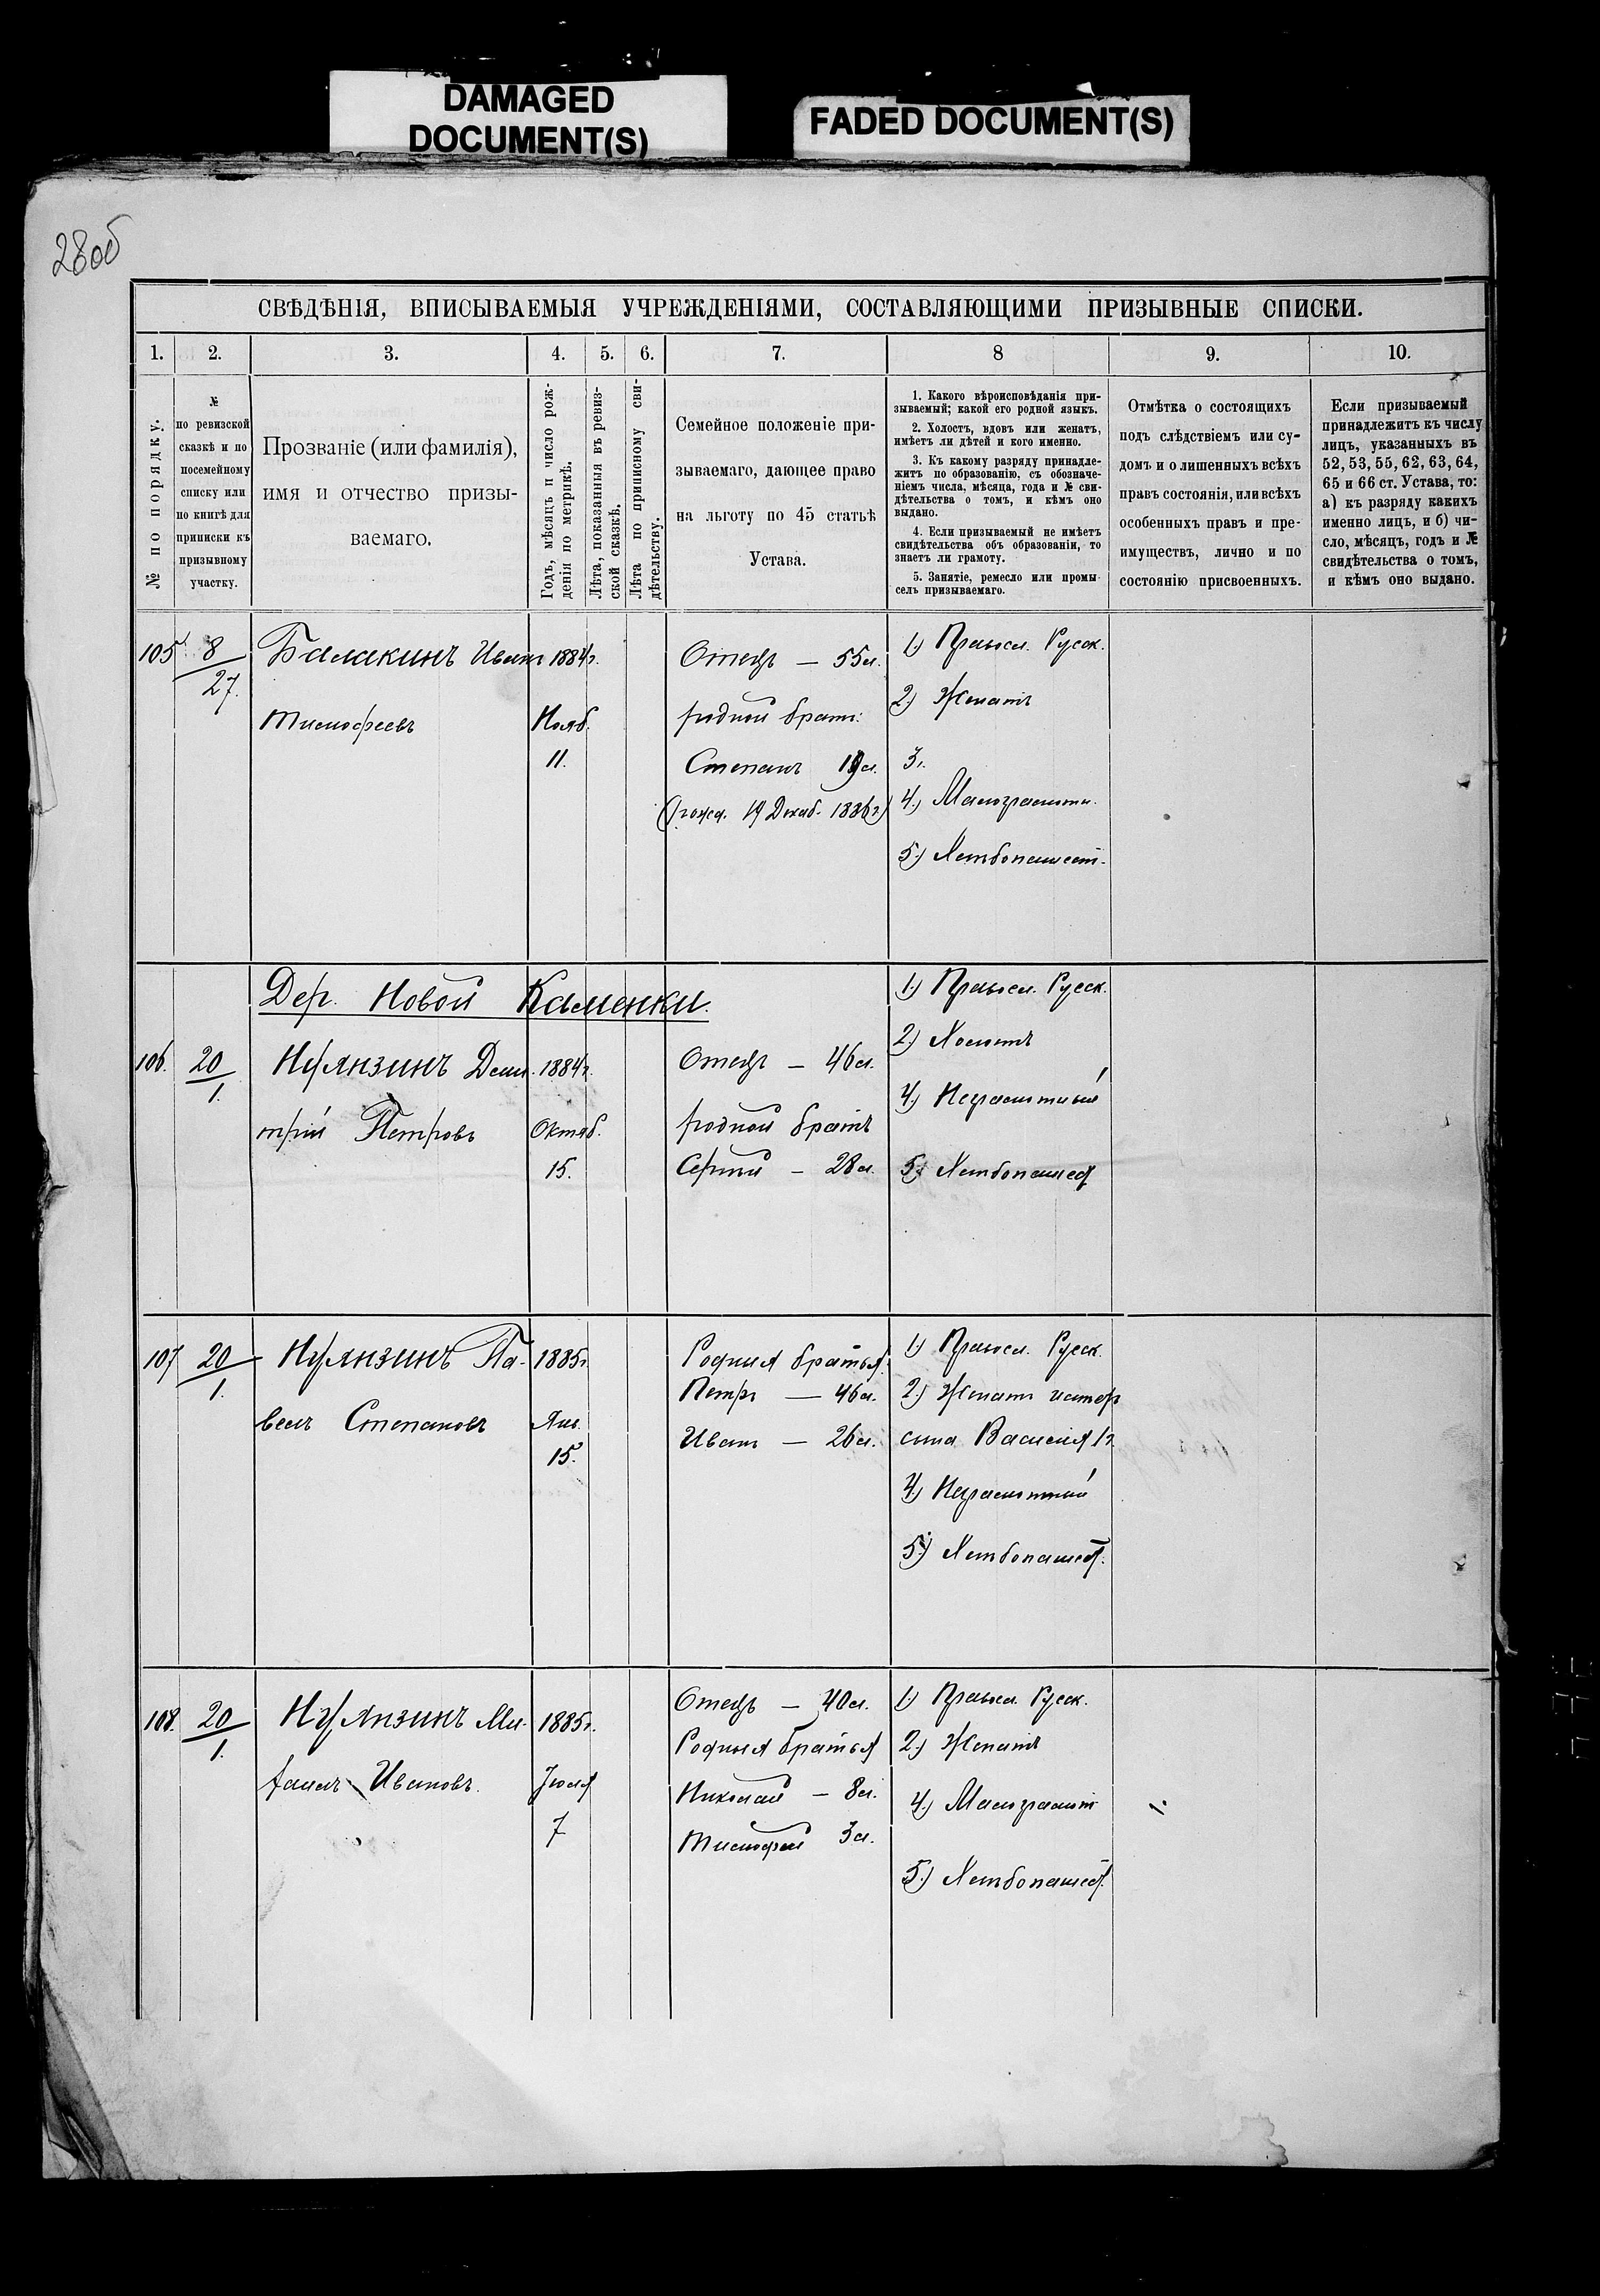 DAMAGED
DOCUMENT(S)
FADED DOCUMENT(S)
28об
СВѢДѢНІЯ, ВПИСЫВАЕМЫЯ УЧРЕЖДЕНІЯМИ, СОСТАВЛЯЮЩИМИ ПРИЗЫВНЫЕ СПИСКИ.
1. 2. 3. 4. 5. 6. 7. 8 9. 10.
№ по порядку.
№
по ревизской
сказкѣ и по
посемейному
списку или
по книгѣ для
приписки къ
призывному
участку.
Прозваніе (или фамилія),
имя и отчество призы-
ваемаго.
Годъ, мѣсяцъ и число рож-
денія по метрикѣ.
Лѣта, показанныя въ ревиз-
ской сказкѣ.
Лѣта по приписному сви-
дѣтельству.
Семейное положеніе при-
зываемаго, дающее право
на льготу по 45 статьѣ
Устава.
1. Какого вѣроисповѣданія при-
зываемый; какой его родной языкъ.
2. Холостъ, вдовъ или женатъ,
имѣетъ ли дѣтей и кого именно.
3. Къ какому разряду принадле-
житъ по образованію, съ обозначе-
ніемъ числа, мѣсяца, года и № сви-
дѣтельства о томъ, и кѣмъ оно
выдано.
4. Если призываемый не имѣетъ
свидѣтельства объ образованіи, то
знаетъ ли грамоту.
5. Занятіе, ремесло или промы-
селъ призываемаго.
Отмѣтка о состоящихъ
подъ слѣдствіемъ или су-
домъ и о лишенныхъ всѣхъ
правъ состоянія, или всѣхъ
особенныхъ правъ и пре-
имуществъ, лично и по
состоянію присвоенныхъ.
Если призываемый
принадлежитъ къ числу
лицъ, указанныхъ въ
52, 53, 55, 62, 63, 64,
65 и 66 ст. Устава, то:
а) къ разряду какихъ
именно лицъ, и б) чи-
сло, мѣсяцъ, годъ и №
свидѣтельства о томъ,
и кѣмъ оно выдано.
105
8
27.
Балакинъ Иванъ
Тимофеевъ
1884г.
Нояб.
11.
Отецъ — 55л.
родной братъ:
Степанъ 19л.
(рожд. 19 Декаб. 1886г)
1) Правосл. Русск.
2) Женатъ
3.
4.) Малограмотн.
5.) Хлѣбопашест.
Дер. Новой Каменки.
106.
20
1.
Нулянзинъ Дми-
трій Петровъ
1884г.
Октяб.
15.
Отецъ — 46л.
родной братъ
Сергѣй — 28л.
1.) Правосл. Русск.
2.) Холостъ
4.) Неграмотный
5.) Хлѣбопашец
107
20
1.
Нулянзинъ Па-
велъ Степановъ
1885г.
Янв.
15.
Родныя братья
Петръ — 46л.
Иванъ — 26л.
1) Правосл. Русск.
2.) Женатъ имѣетъ
сына Василія 1г.
4.) Неграмотный
5.) Хлѣбопашест.
108.
20
1.
Нулянзинъ Ми-
хаилъ Ивановъ.
1885г.
Іюля
7
Отецъ — 40л.
Родныя братья
Николай — 8л.
Тимофей 3л.
1.) Правосл. Русск.
2.) Женатъ
4.) Малограмот
5.) Хлѣбопашест.